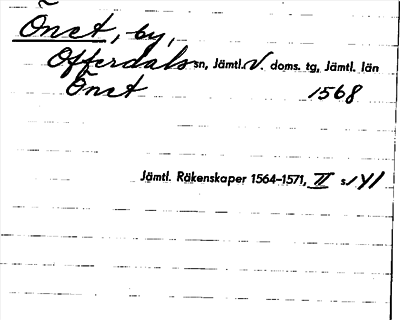 Õnet, by,
Offerdals sn, Jämtl. V. doms. tg, Jämtl. län
Õnet 1568
Jämtl. Räkenskaper 1564-1571, II s. 141